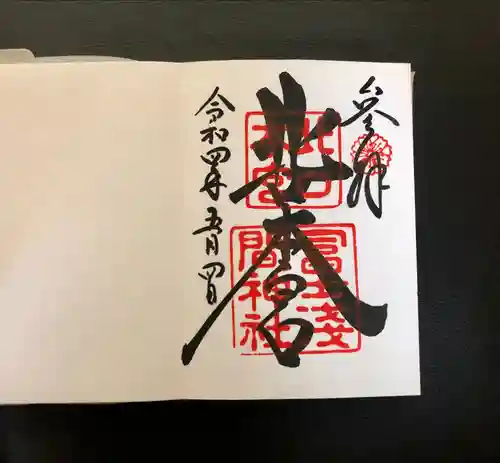 奉拝
北口本宮
冨士浅間神社
令和四年五月四日